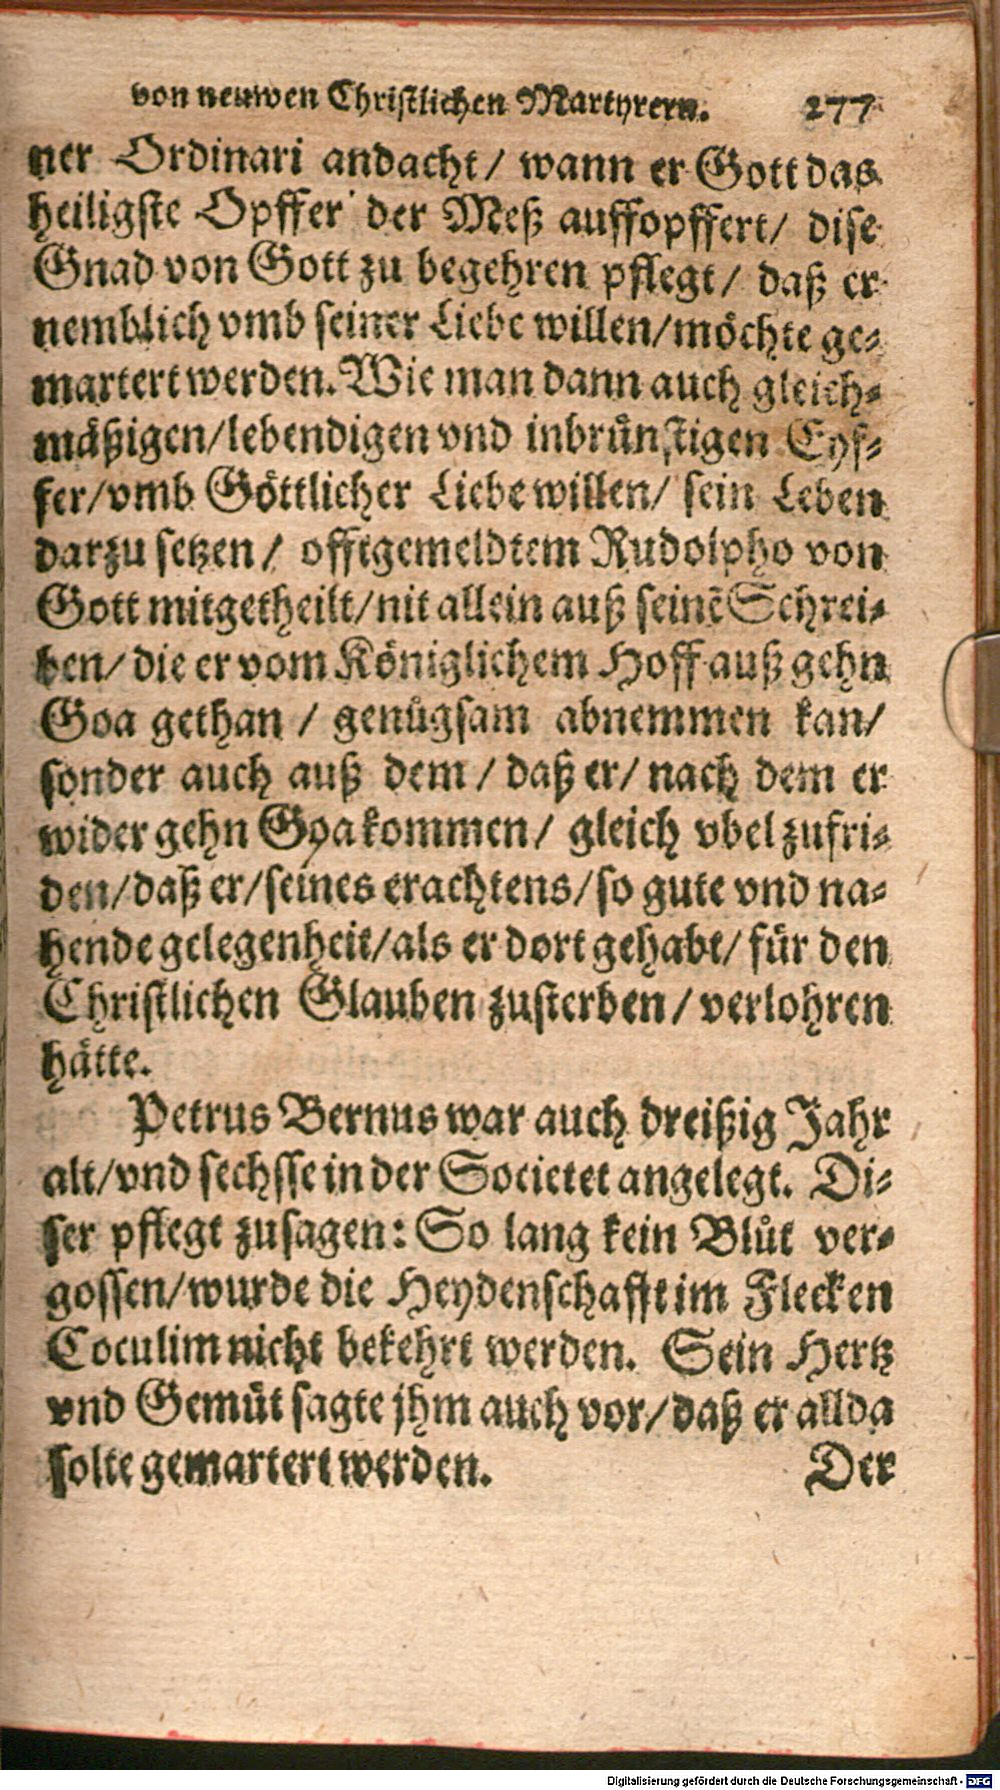 von neuwen Christlichen Martyrern. 277
ner Ordinari andacht/ wann er Gott das
heiligste Opffer der Meß auffopffert/ dise
Gnad von Gott zu begehren pflegt/ daß er
nemblich vmb seiner Liebe willen/möchte ge-
martert werden. Wie man dann auch gleich-
mäßigen/lebendigen vnd inbrünstigen Eyf-
fer/vmb Göttlicher Liebe willen/ sein Leben
darzu setzen/ offtgemeldtem Rudolpho von
Gott mitgetheilt/nit allein auß seinẽ Schrei-
ben/ die er vom Königlichem Hoff auß gehn
Goa gethan / genůgsam abnemmen kan/
sonder auch auß dem / daß er/ nach dem er
wider gehn Goa kommen/ gleich vbel zufri-
den/daß er/seines erachtens/so gute vnd na-
hende gelegenheit/als er dort gehabt/ für den
Christlichen Glauben zusterben / verlohren
hätte.
Petrus Bernus war auch dreißig Jahr
alt/vnd sechsse in der Societet angelegt. Di-
ser pflegt zusagen: So lang kein Blůt ver-
gossen/wurde die Heydenschafft im Flecken
Coculim nicht bekehrt werden. Sein Hertz
vnd Gemüt sagte jhm auch vor/daß er allda
solte gemartert werden. Der
Digitalisierung gefördert durch die Deutsche Forschungsgemeinschaft - DFG